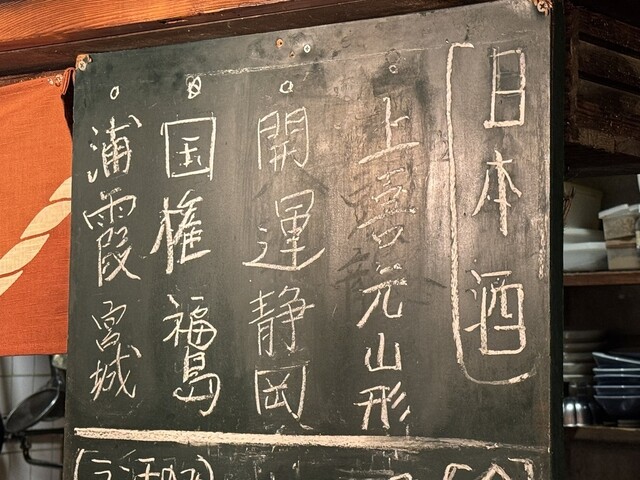 日本酒
上喜元 山形
開運 静岡
国権 福島
浦霞 宮城